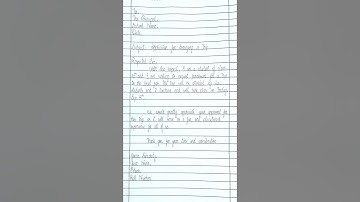 To,
The Principal,
School Name,
Date,
Subject: Application for arranging a Trip.
Respected Sir,
With due respect, I am a student of class
and I am writing to request permission for a Trip
students and 2 teachers and will take place on Friday,
We would greatly appreciate your approval for
this trip as it will be a fun and educational
experience for all of us.
Thank you for your time and consideration.
Yours Sincerely,
Your Name,
Class,
Roll Number.